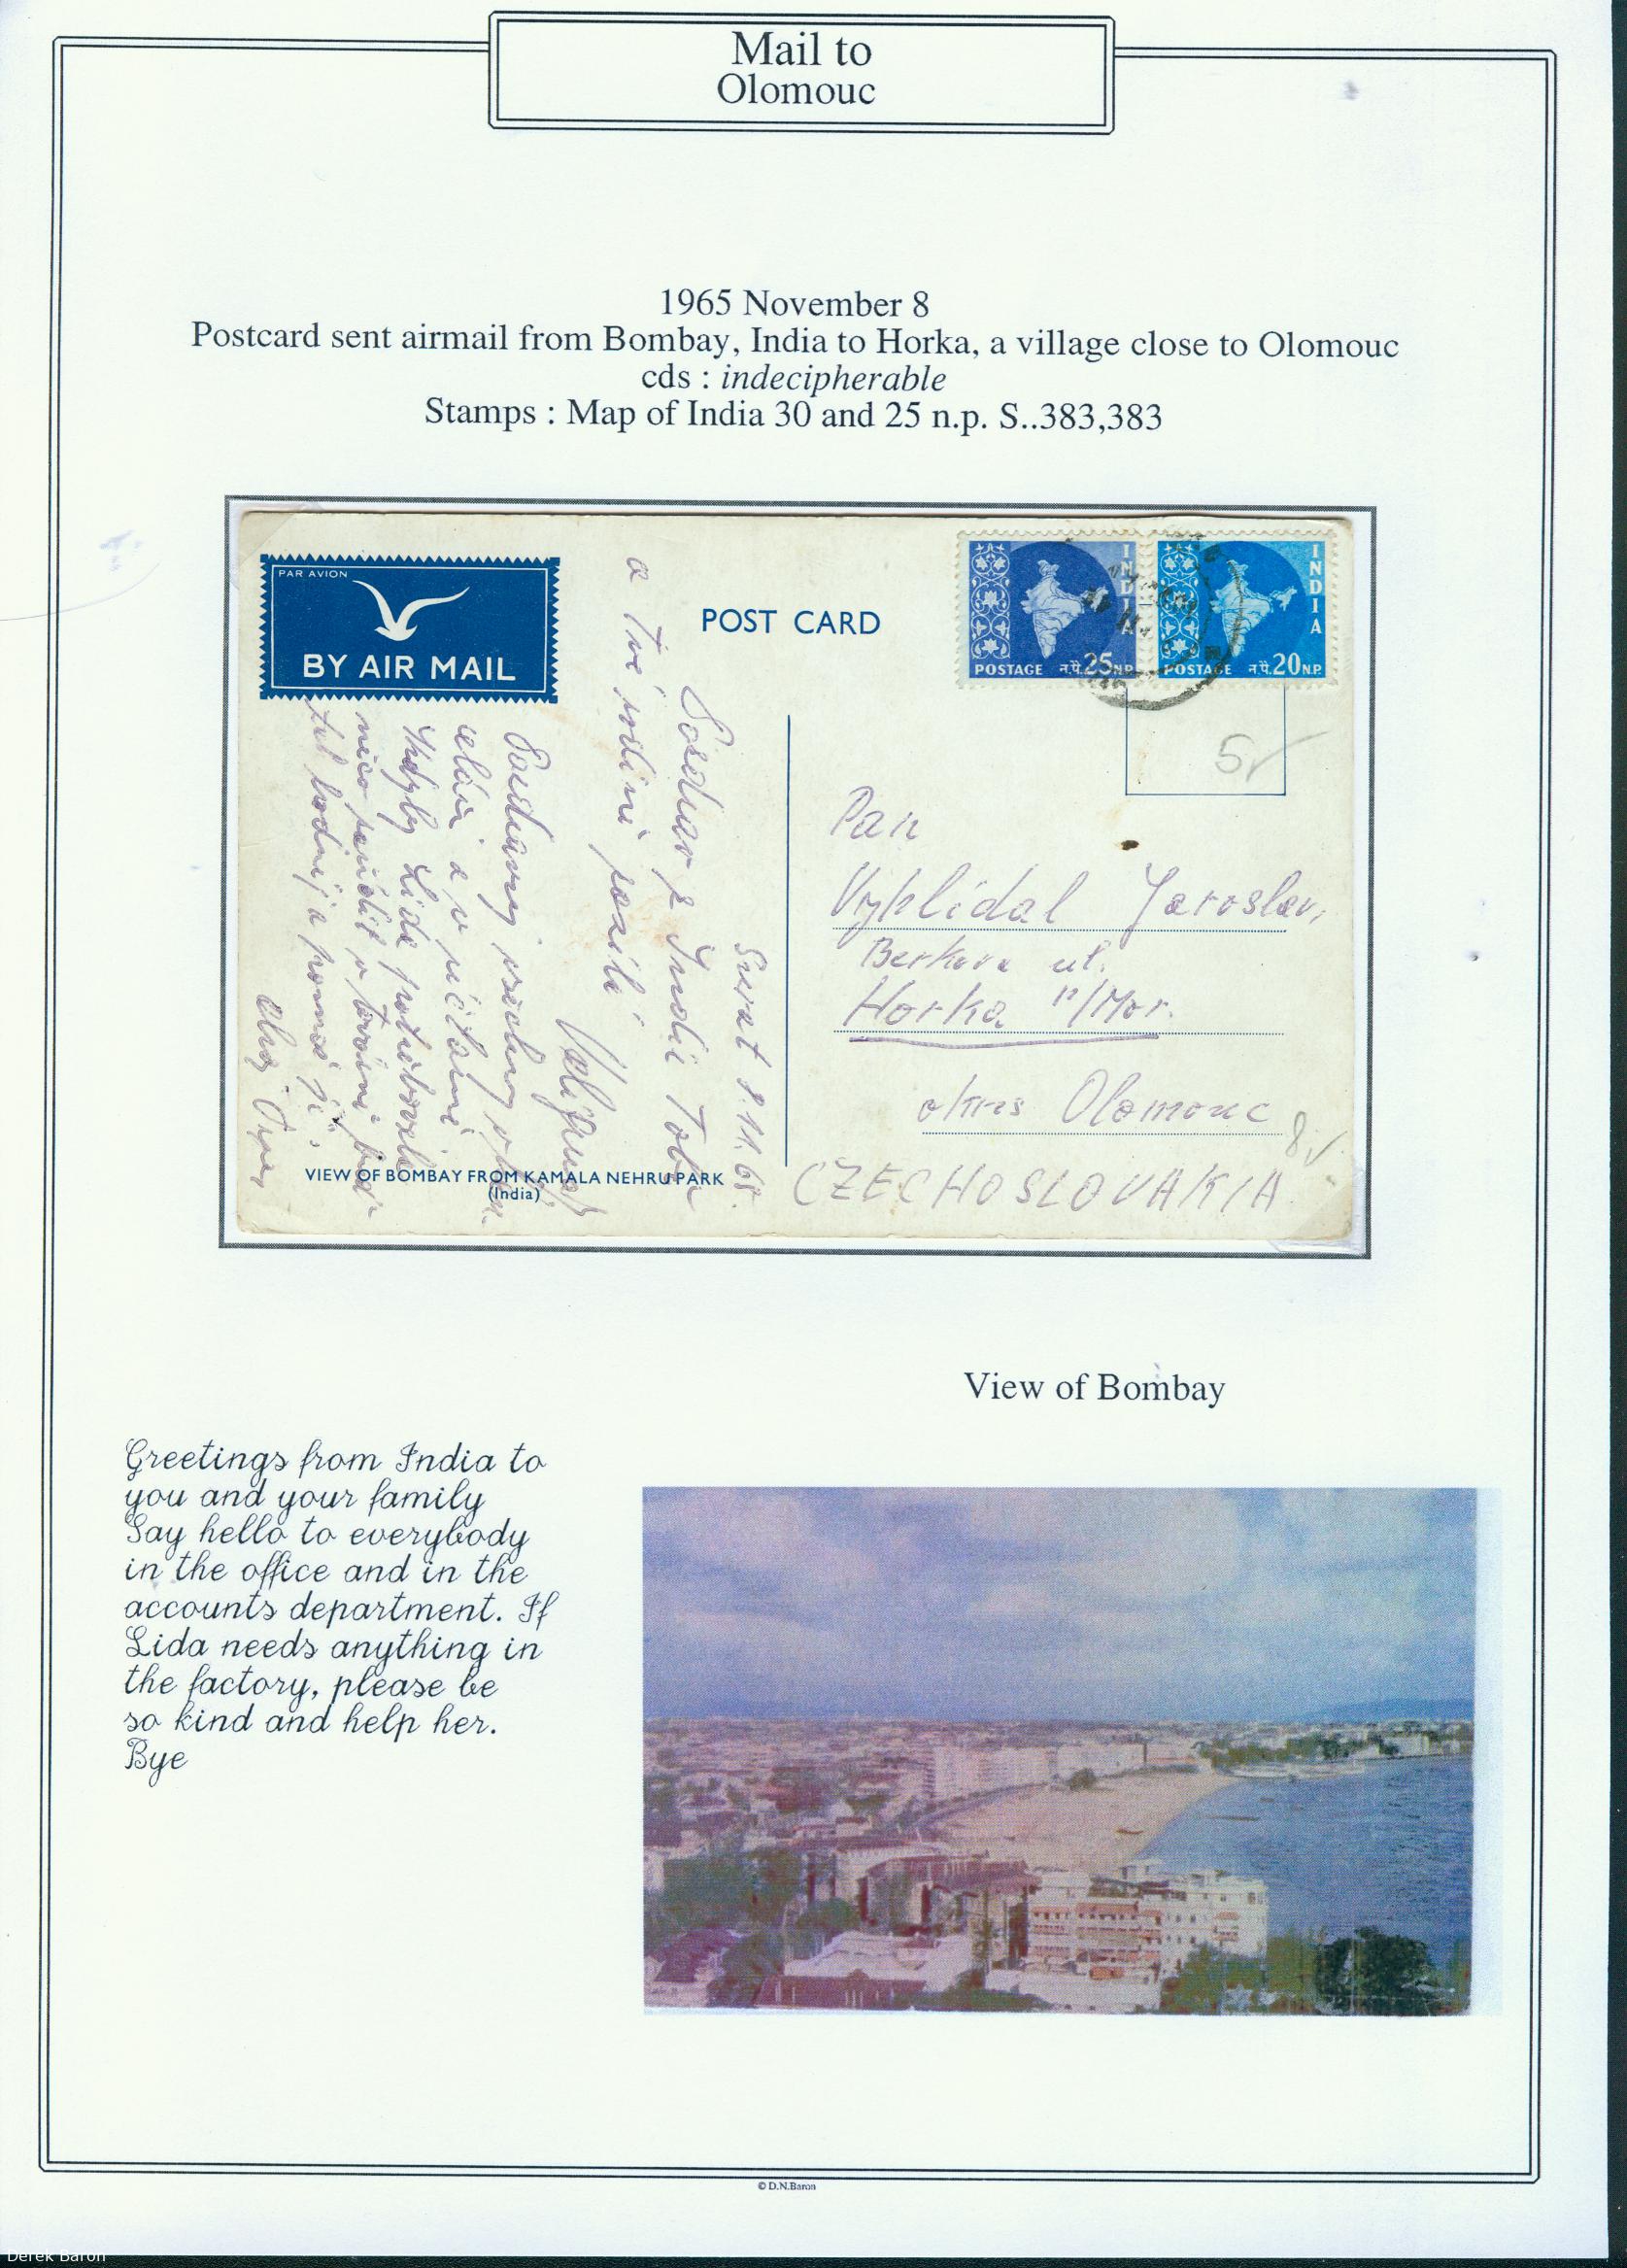 Mail to
Olomouc
1965 November 8
Postcard sent airmail from Bombay, India to Horka, a village close to Olomouc
cds : indecipherable
Stamps : Map of India 30 and 25 n.p. S..383,383
PAR AVION
BY AIR MAIL
POST CARD
INDIA
POSTAGE न.पै. 25 N.P.
INDIA
POSTAGE न.पै. 20 N.P.
5
Surat 8.11.
Indie
a Tvé rodině
a v účtárně
Kdyby Lída potřebovala
Pan
Vyhlídal Jaroslav,
ul.
Horka n/Mor.
okres Olomouc
8
CZECHOSLOVAKIA
VIEW OF BOMBAY FROM KAMALA NEHRU PARK
(India)
View of Bombay
Greetings from India to
you and your family
Say hello to everybody
in the office and in the
accounts department. If
Lida needs anything in
the factory, please be
so kind and help her.
Bye
© D.N.Baron
Derek Baron